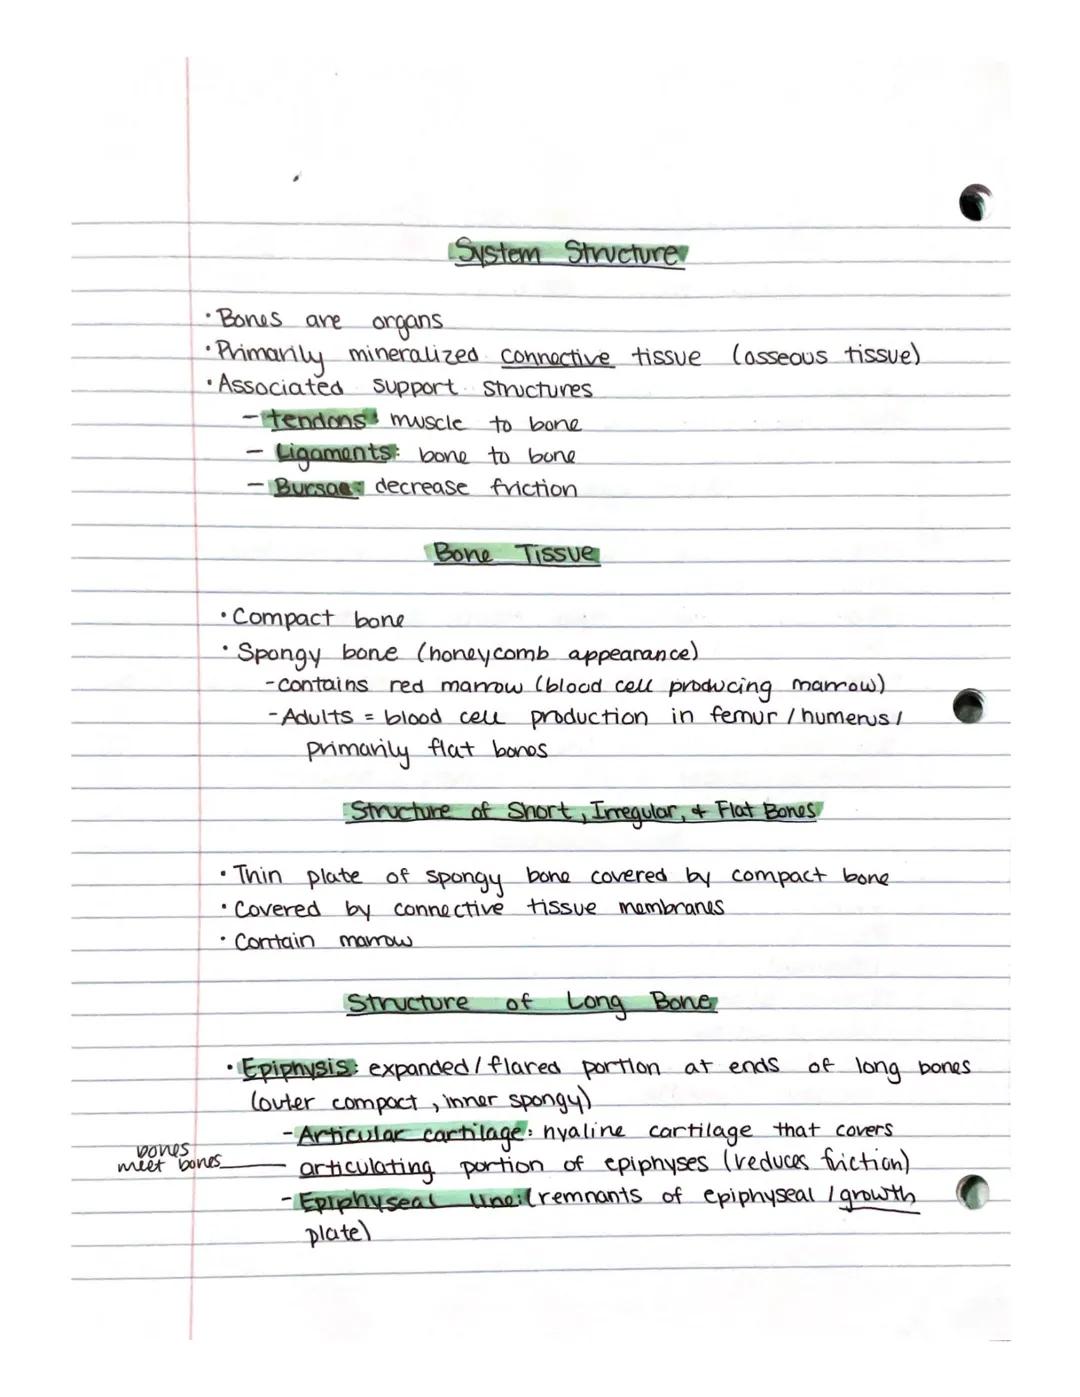 System Structure
• Bones are organs
• Primarily mineralized connective tissue (osseous tissue)
• Associated support structures
- tendons: muscle to bone
- Ligaments: bone to bone
- Bursae: decrease friction
Bone Tissue
• Compact bone
• Spongy bone (honeycomb appearance)
- contains red marrow (blood cell producing marrow)
- Adults = blood cell production in femur / humerus /
primarily flat bones
Structure of Short, Irregular, + Flat Bones
• Thin plate of spongy bone covered by compact bone
• Covered by connective tissue membranes
• Contain marrow
Structure of Long Bone
• Epiphysis: expanded / flared portion at ends of long bones
(outer compact, inner spongy)
- Articular cartilage: hyaline cartilage that covers
bones
meet bones
articulating portion of epiphyses (reduces friction)
- Epiphyseal line: (remnants of epiphyseal / growth
plate)